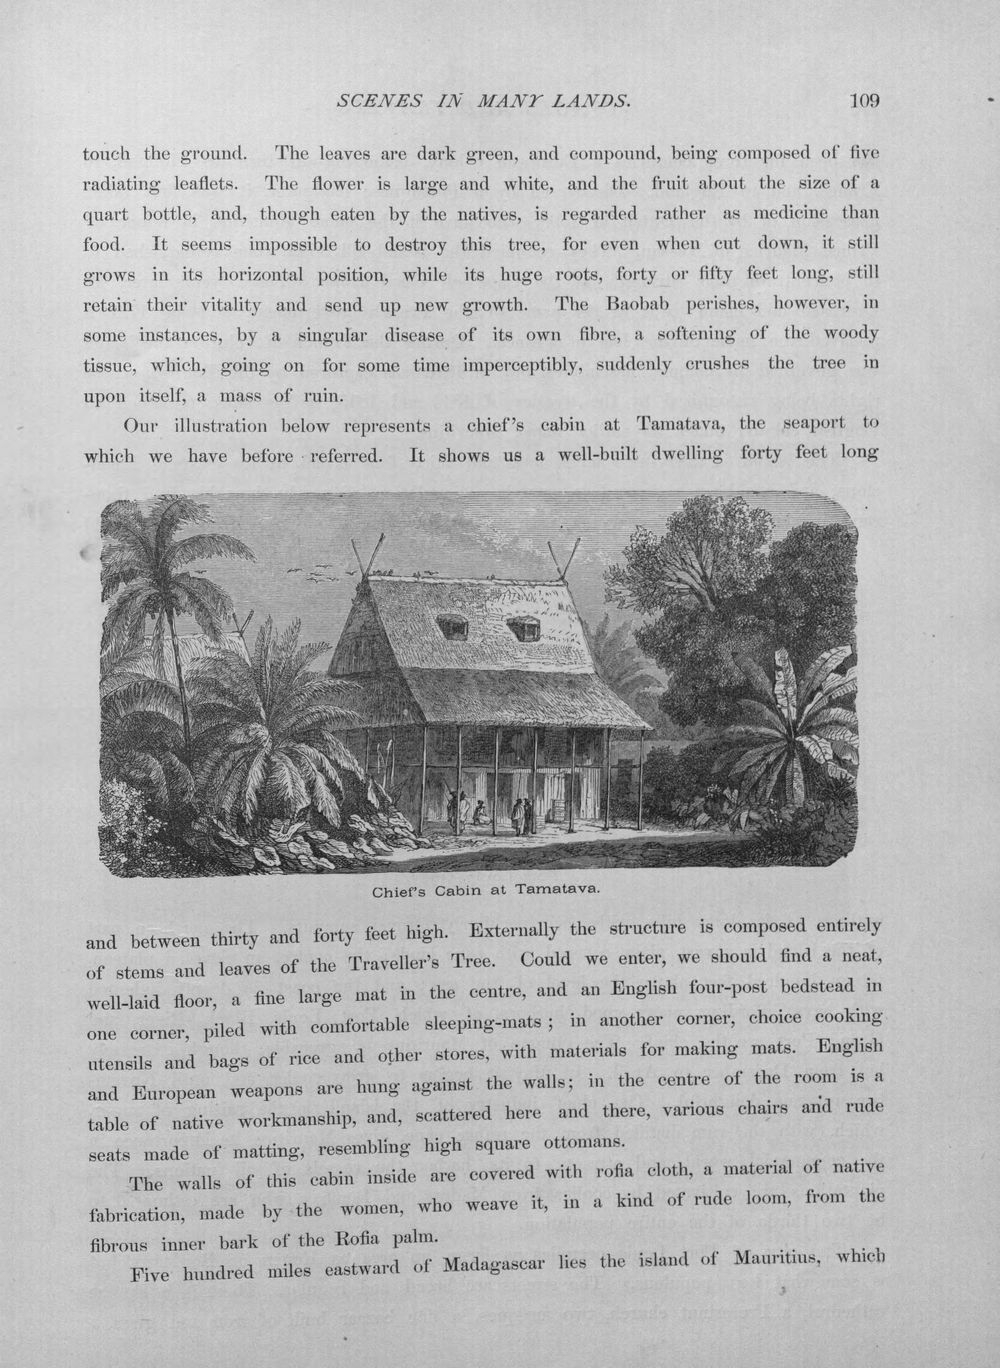 SCENES IN MANY LANDS. 109
touch the ground. The leaves are dark green, and compound, being composed of five
radiating leaflets. The flower is large and white, and the fruit about the size of a
quart bottle, and, though eaten by the natives, is regarded rather as medicine than
food. It seems impossible to destroy this tree, for even when cut down, it still
grows in its horizontal position, while its huge roots, forty or fifty feet long, still
retain their vitality and send up new growth. The Baobab perishes, however, in
some instances, by a singular disease of its own fibre, a softening of the woody
tissue, which, going on for some time imperceptibly, suddenly crushes the tree in
upon itself, a mass of ruin.
Our illustration below represents a chief's cabin at Tamatava, the seaport to
which we have before referred. It shows us a well-built dwelling forty feet long
Chief's Cabin at Tamatava.
and between thirty and forty feet high. Externally the structure is composed entirely
of stems and leaves of the Traveller's Tree. Could we enter, we should find a neat,
well-laid floor, a fine large mat in the centre, and an English four-post bedstead in
one corner, piled with comfortable sleeping-mats ; in another corner, choice cooking
utensils and bags of rice and other stores, with materials for making mats. English
and European weapons are hung against the walls; in the centre of the room is a
table of native workmanship, and, scattered here and there, various chairs and rude
seats made of matting, resembling high square ottomans.
The walls of this cabin inside are covered with rofia cloth, a material of native
fabrication, made by the women, who weave it, in a kind of rude loom, from the
fibrous inner bark of the Rofia palm.
Five hundred miles eastward of Madagascar lies the island of Mauritius, which